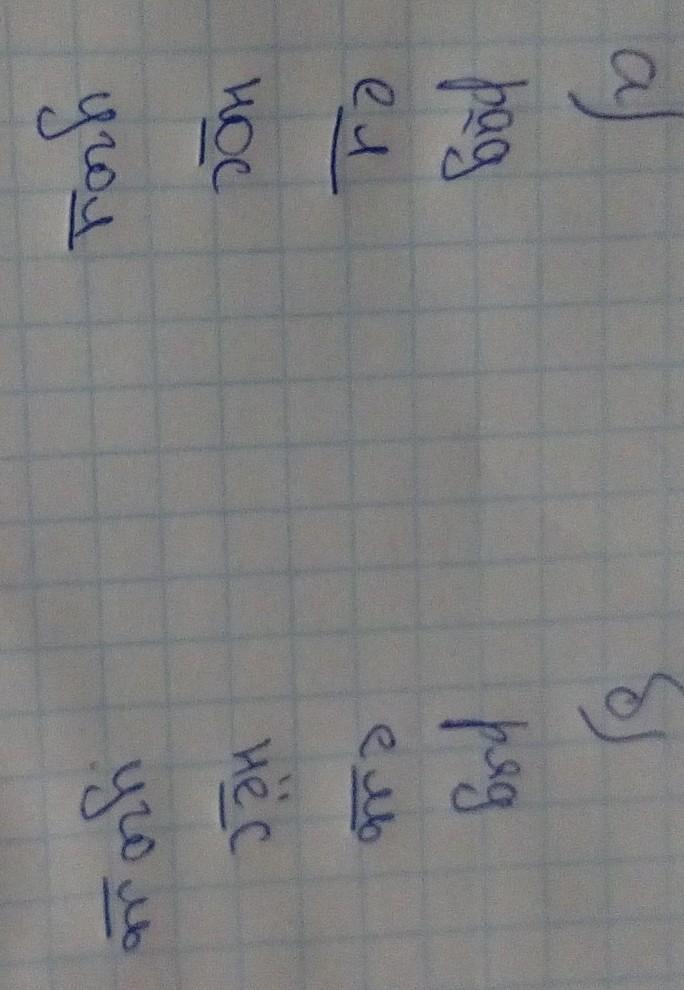 а) б)
рад ряд
ел ель
нос нёс
угол уголь